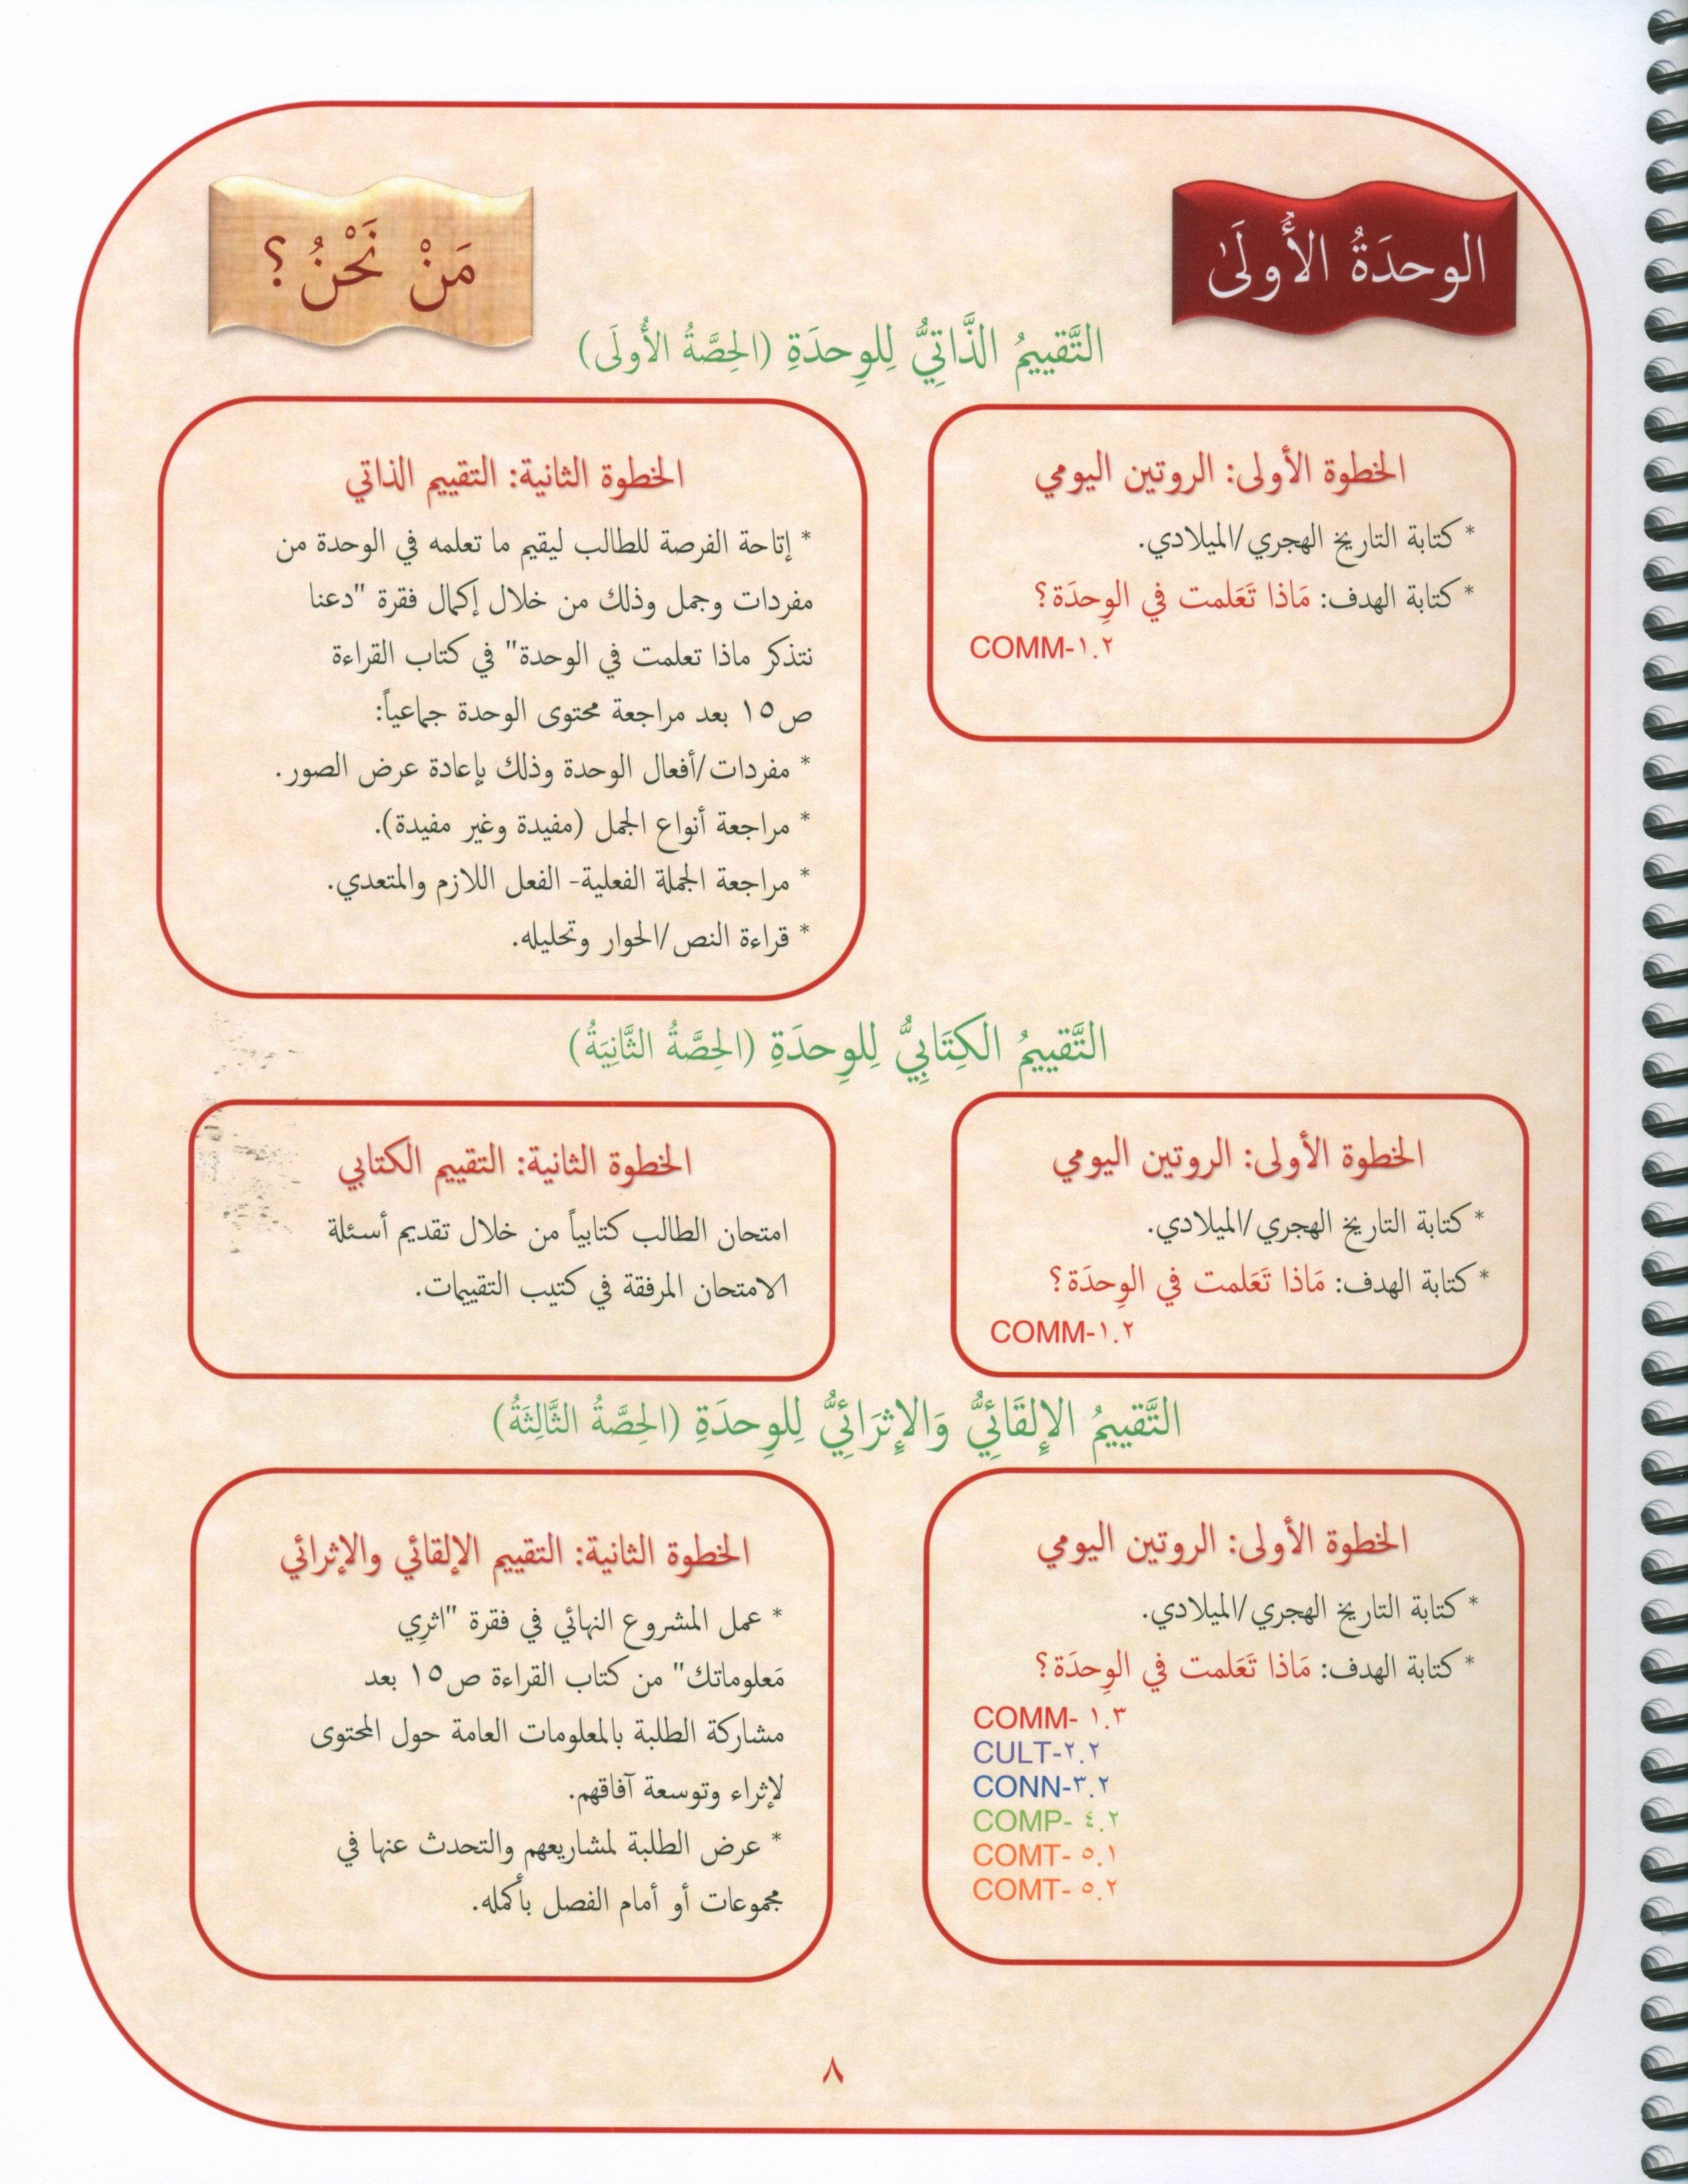 الوحدَةُ الأُولَىٰ
مَنْ نَحْنُ؟
التَّقييمُ الذَّاتِيُّ لِلوِحدَةِ (الحِصَّةُ الأُولَى)
الخطوة الأولى: الروتين اليومي
* كتابة التاريخ الهجري/الميلادي.
* كتابة الهدف: مَاذا تَعَلمت في الوِحدَة؟
COMM-١.٢
الخطوة الثانية: التقييم الذاتي
* إتاحة الفرصة للطالب ليقيم ما تعلمه في الوحدة من
مفردات وجمل وذلك من خلال إكمال فقرة "دعنا
نتذكر ماذا تعلمت في الوحدة" في كتاب القراءة
ص١٥ بعد مراجعة محتوى الوحدة جماعياً:
* مفردات/أفعال الوحدة وذلك بإعادة عرض الصور.
* مراجعة أنواع الجمل (مفيدة وغير مفيدة).
* مراجعة الجملة الفعلية- الفعل اللازم والمتعدي.
* قراءة النص/الحوار وتحليله.
التَّقييمُ الكِتَابِيُّ لِلوِحدَةِ (الحِصَّةُ الثَّانِيَةُ)
الخطوة الأولى: الروتين اليومي
* كتابة التاريخ الهجري/الميلادي.
* كتابة الهدف: مَاذا تَعَلمت في الوِحدَة؟
COMM-١.٢
الخطوة الثانية: التقييم الكتابي
امتحان الطالب كتابياً من خلال تقديم أسئلة
الامتحان المرفقة في كتيب التقييمات.
التَّقييمُ الإِلقَائِيُّ وَالإِثرَائِيُّ لِلوِحدَةِ (الحِصَّةُ الثَّالِثَةُ)
الخطوة الأولى: الروتين اليومي
* كتابة التاريخ الهجري/الميلادي.
* كتابة الهدف: مَاذا تَعَلمت في الوِحدَة؟
COMM- ١.٣
CULT-٢.٢
CONN-٣.٢
COMP- ٤.٢
COMT- ٥.١
COMT- ٥.٢
الخطوة الثانية: التقييم الإلقائي والإثرائي
* عمل المشروع النهائي في فقرة "اثرِي
مَعلوماتك" من كتاب القراءة ص١٥ بعد
مشاركة الطلبة بالمعلومات العامة حول المحتوى
لإثراء وتوسعة آفاقهم.
* عرض الطلبة لمشاريعهم والتحدث عنها في
مجموعات أو أمام الفصل بأكمله.
٨